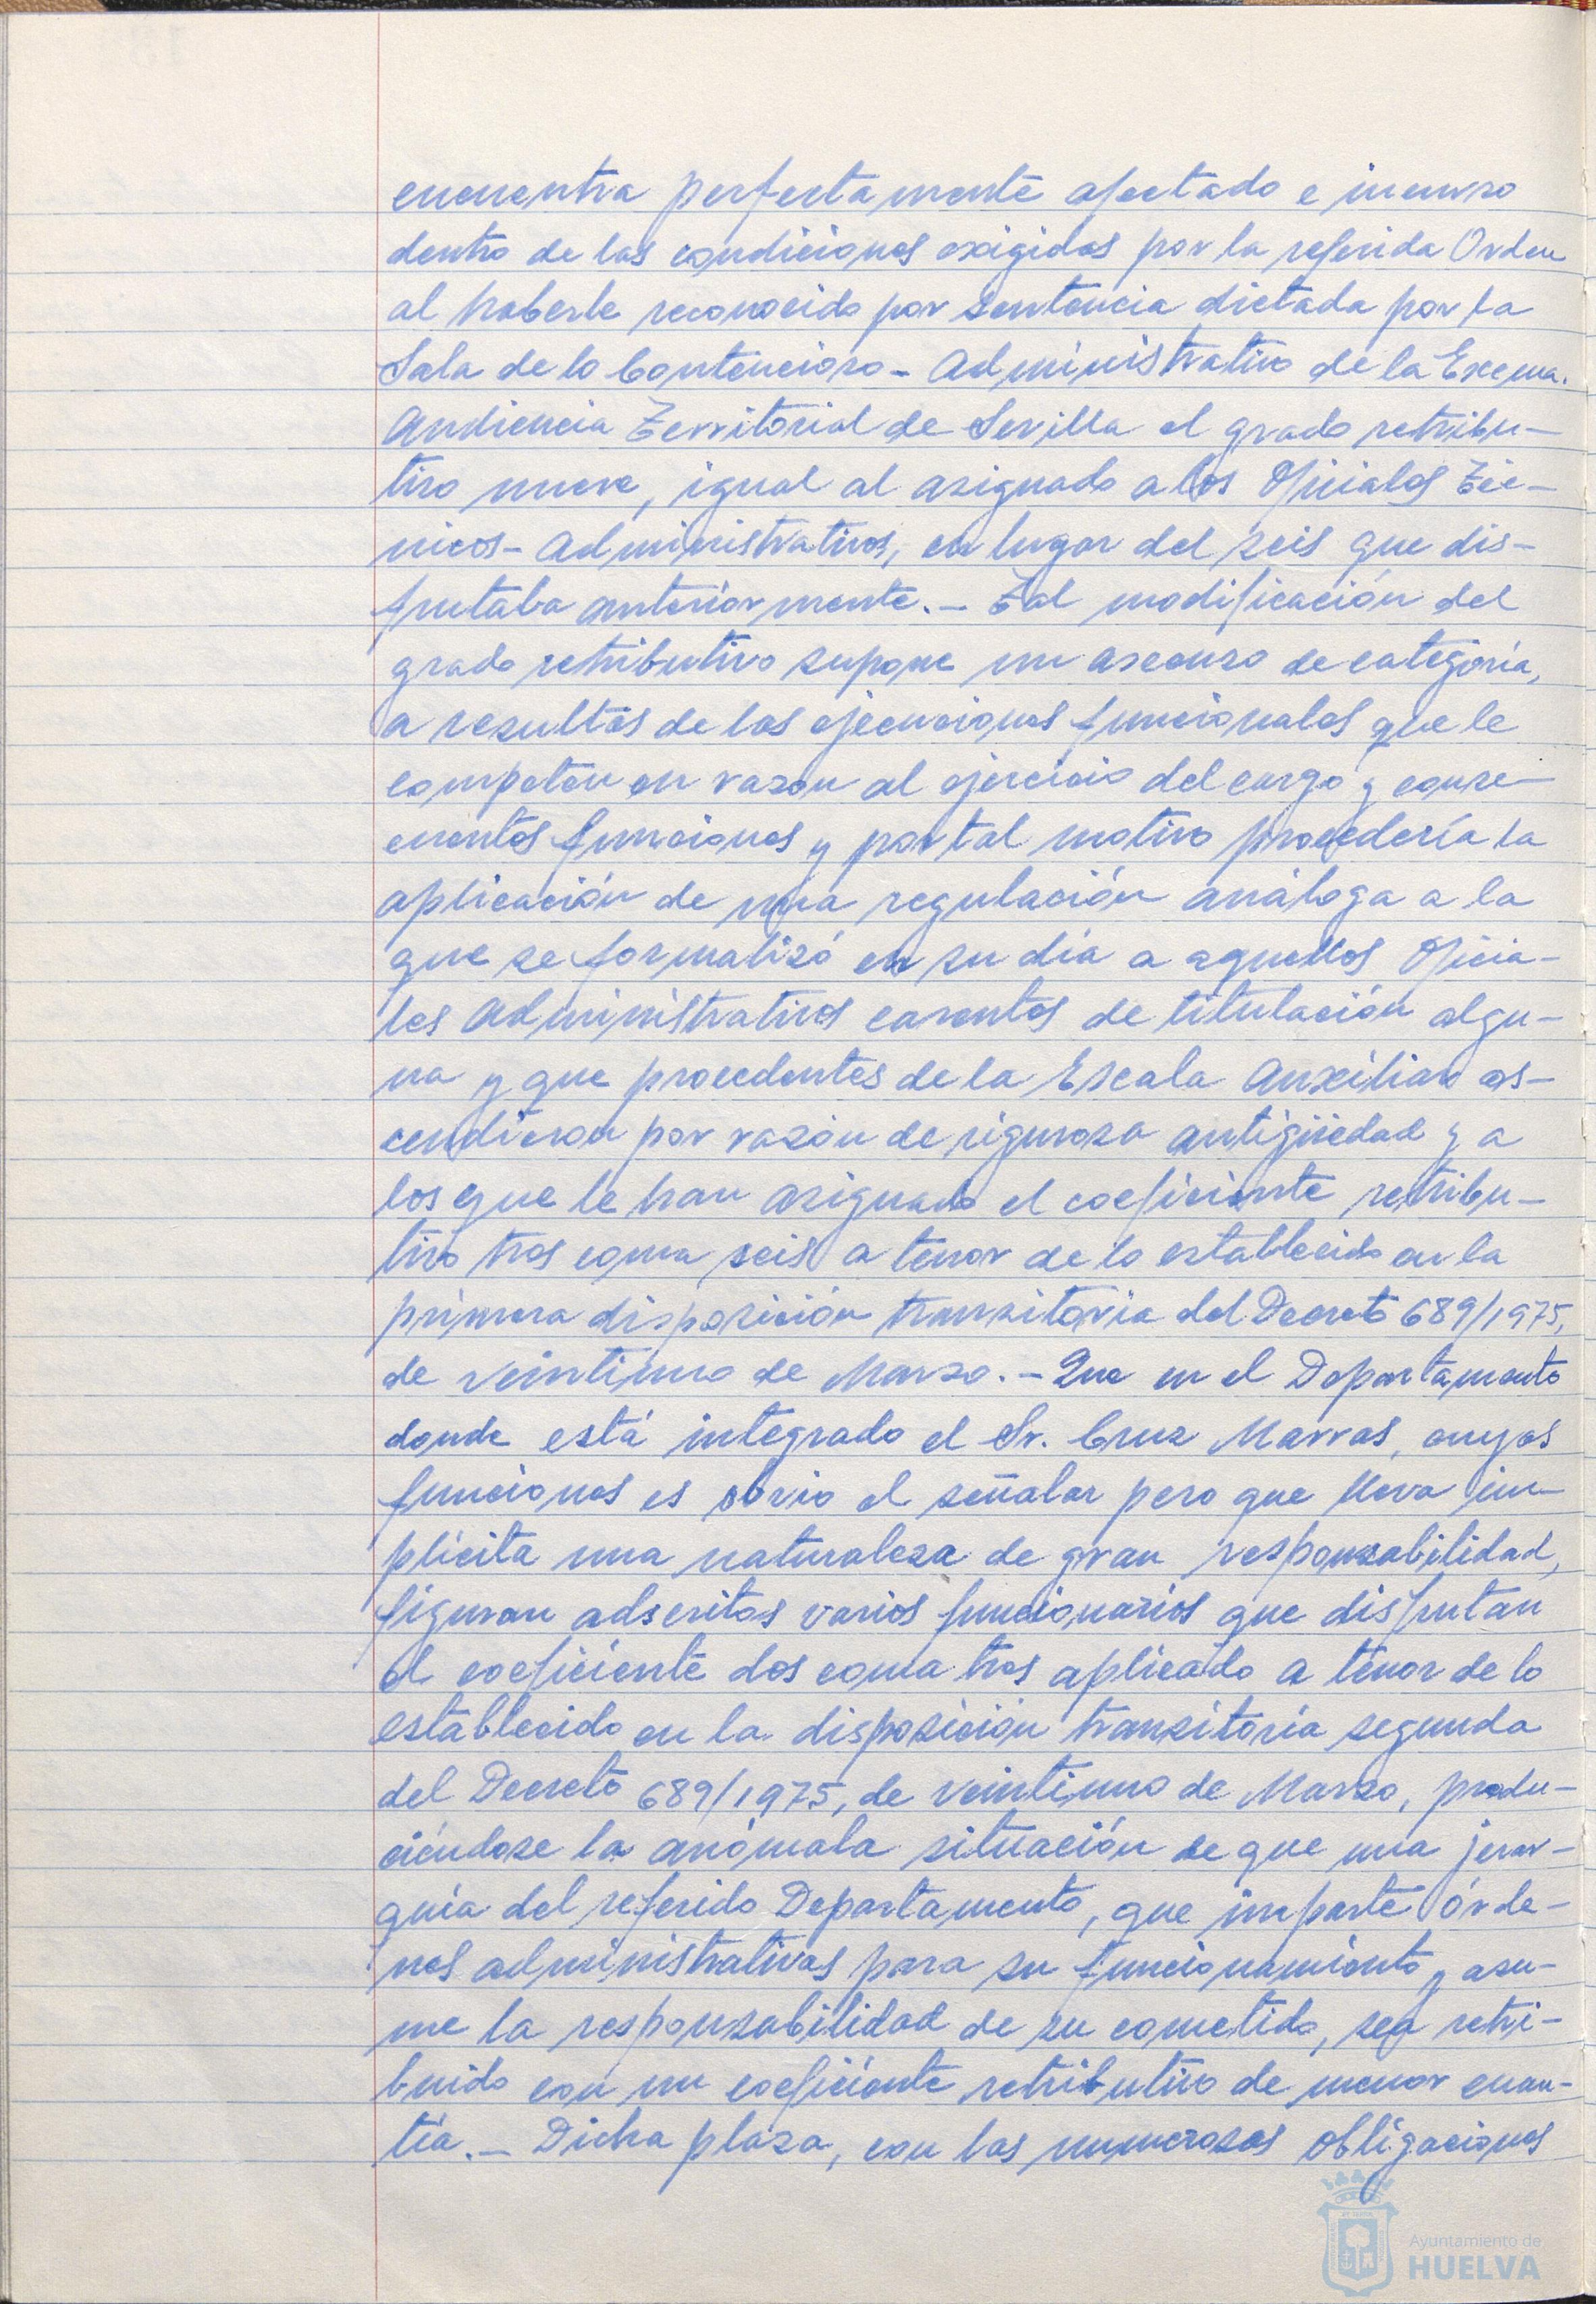 encuentra perfectamente afectado e incurso
dentro de las condiciones exigidas por la referida Orden
al haberle reconocido por sentencia dictada por la
Sala de lo Contencioso - Administrativo de la Excma.
Audiencia Territorial de Sevilla el grado retribu-
tivo nueve, igual al asignado a los Oficiales Téc-
nicos - Administrativos, en lugar del seis que dis-
frutaba anteriormente. - Tal modificación del
grado retributivo supone un ascenso de categoría,
a resultas de las ejecuciones funcionales que le
competen en razón al ejercicio del cargo y conse-
cuentes funciones y por tal motivo procedería la
aplicación de una regulación análoga a la
que se formalizó en su día a aquellos Oficia-
les Administrativos carentes de titulación algu-
na y que procedentes de la Escala Auxiliar as-
cendieron por razón de rigurosa antigüedad y a
los que le han asignado el coeficiente retribu-
tivo tres coma seis a tenor de lo establecido en la
primera disposición transitoria del Decreto 689/1975,
de veintiuno de Marzo. - Que en el Departamento
donde está integrado el Sr. Cruz Marras, cuyas
funciones es obvio el señalar pero que lleva im-
plícita una naturaleza de gran responsabilidad,
figuran adscritos varios funcionarios que disfrutan
el coeficiente dos coma tres aplicado a tenor de lo
establecido en la disposición transitoria segunda
del Decreto 689/1975, de veintiuno de Marzo, produ-
ciéndose la anómala situación de que una jerar-
quía del referido Departamento, que imparte órde-
nes administrativas para su funcionamiento y asu-
me la responsabilidad de su cometido, sea retri-
buido con un coeficiente retributivo de menor cuan-
tía. - Dicha plaza, con las numerosas obligaciones
Ayuntamiento de
HUELVA